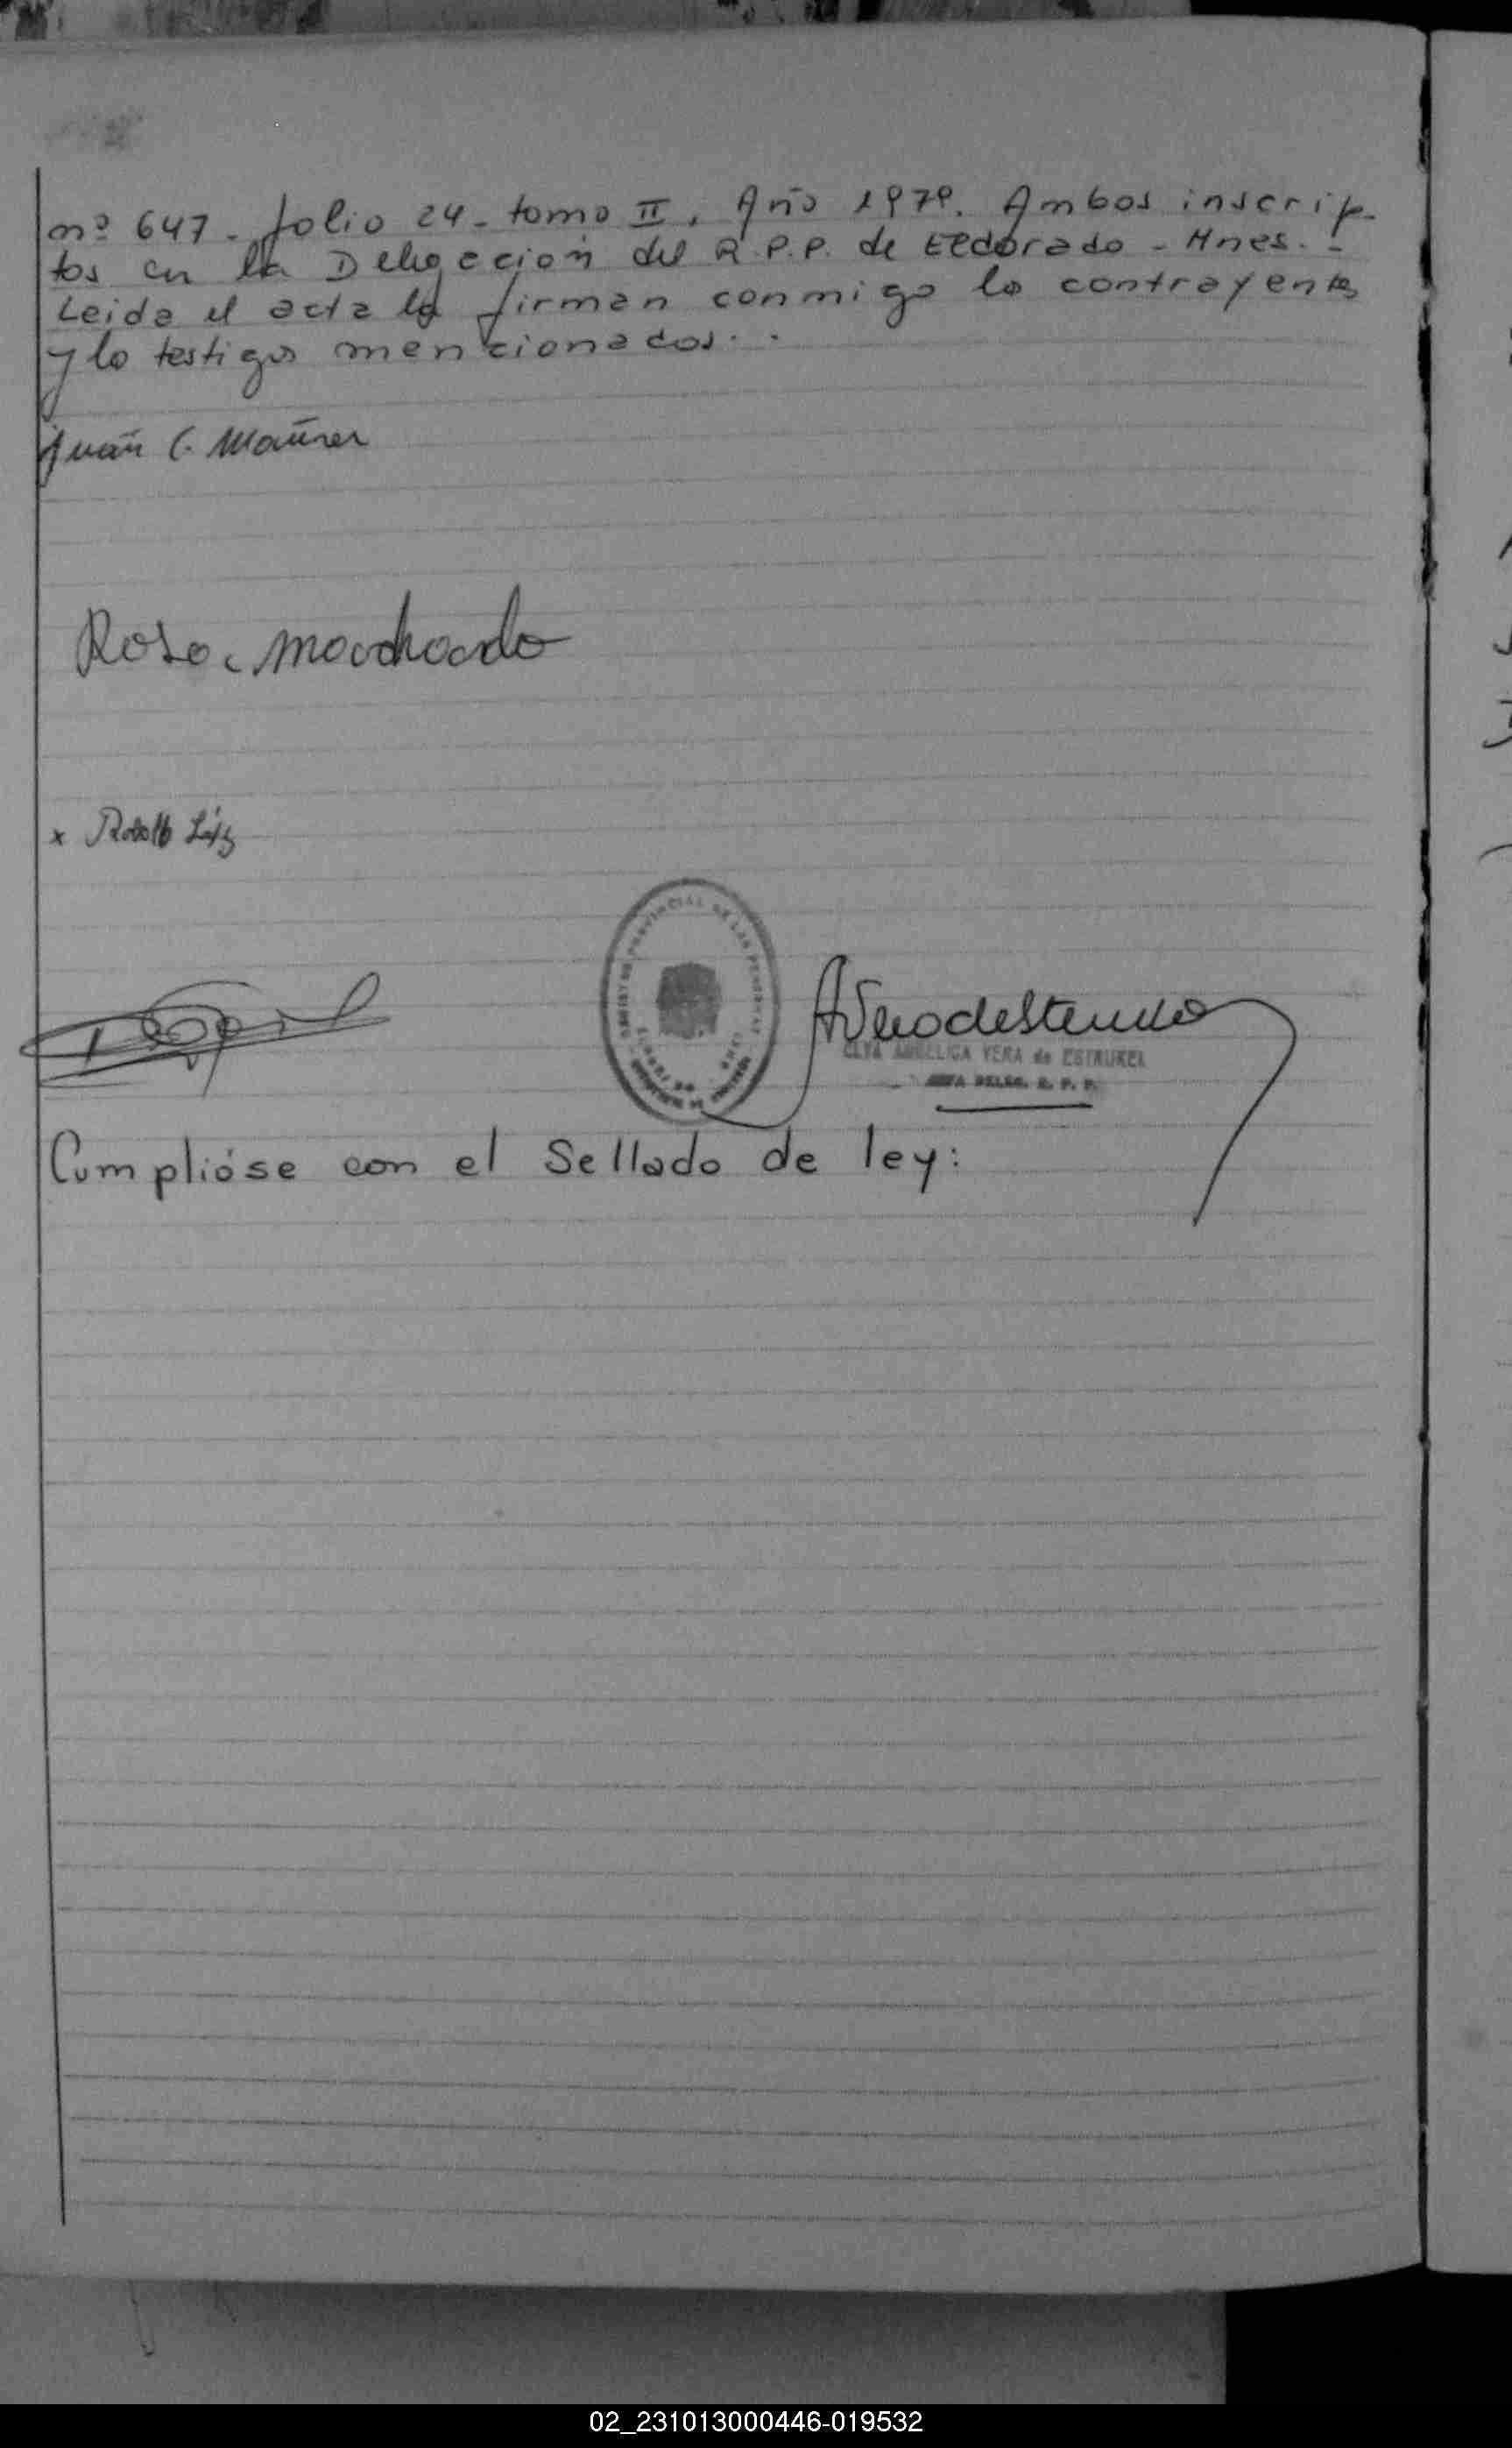 nº 647. folio 24 - tomo II. Año 1979. Ambos inscrip-
tos en la Delegación del R.P.P. de Eldorado - Mnes. -
Leida el acta la firman conmigo lo contrayentes
y lo testigos mencionados. -
Juan C. Maurer
Rosa Machado
x Rodolfo
REGISTRO PROVINCIAL DE LAS PERSONAS
AVera de Estrukel
ELVA ANGELICA VERA de ESTRUKEL
JEFA DELEG. R. P. P.
Cumplióse con el Sellado de ley:
02_231013000446-019532